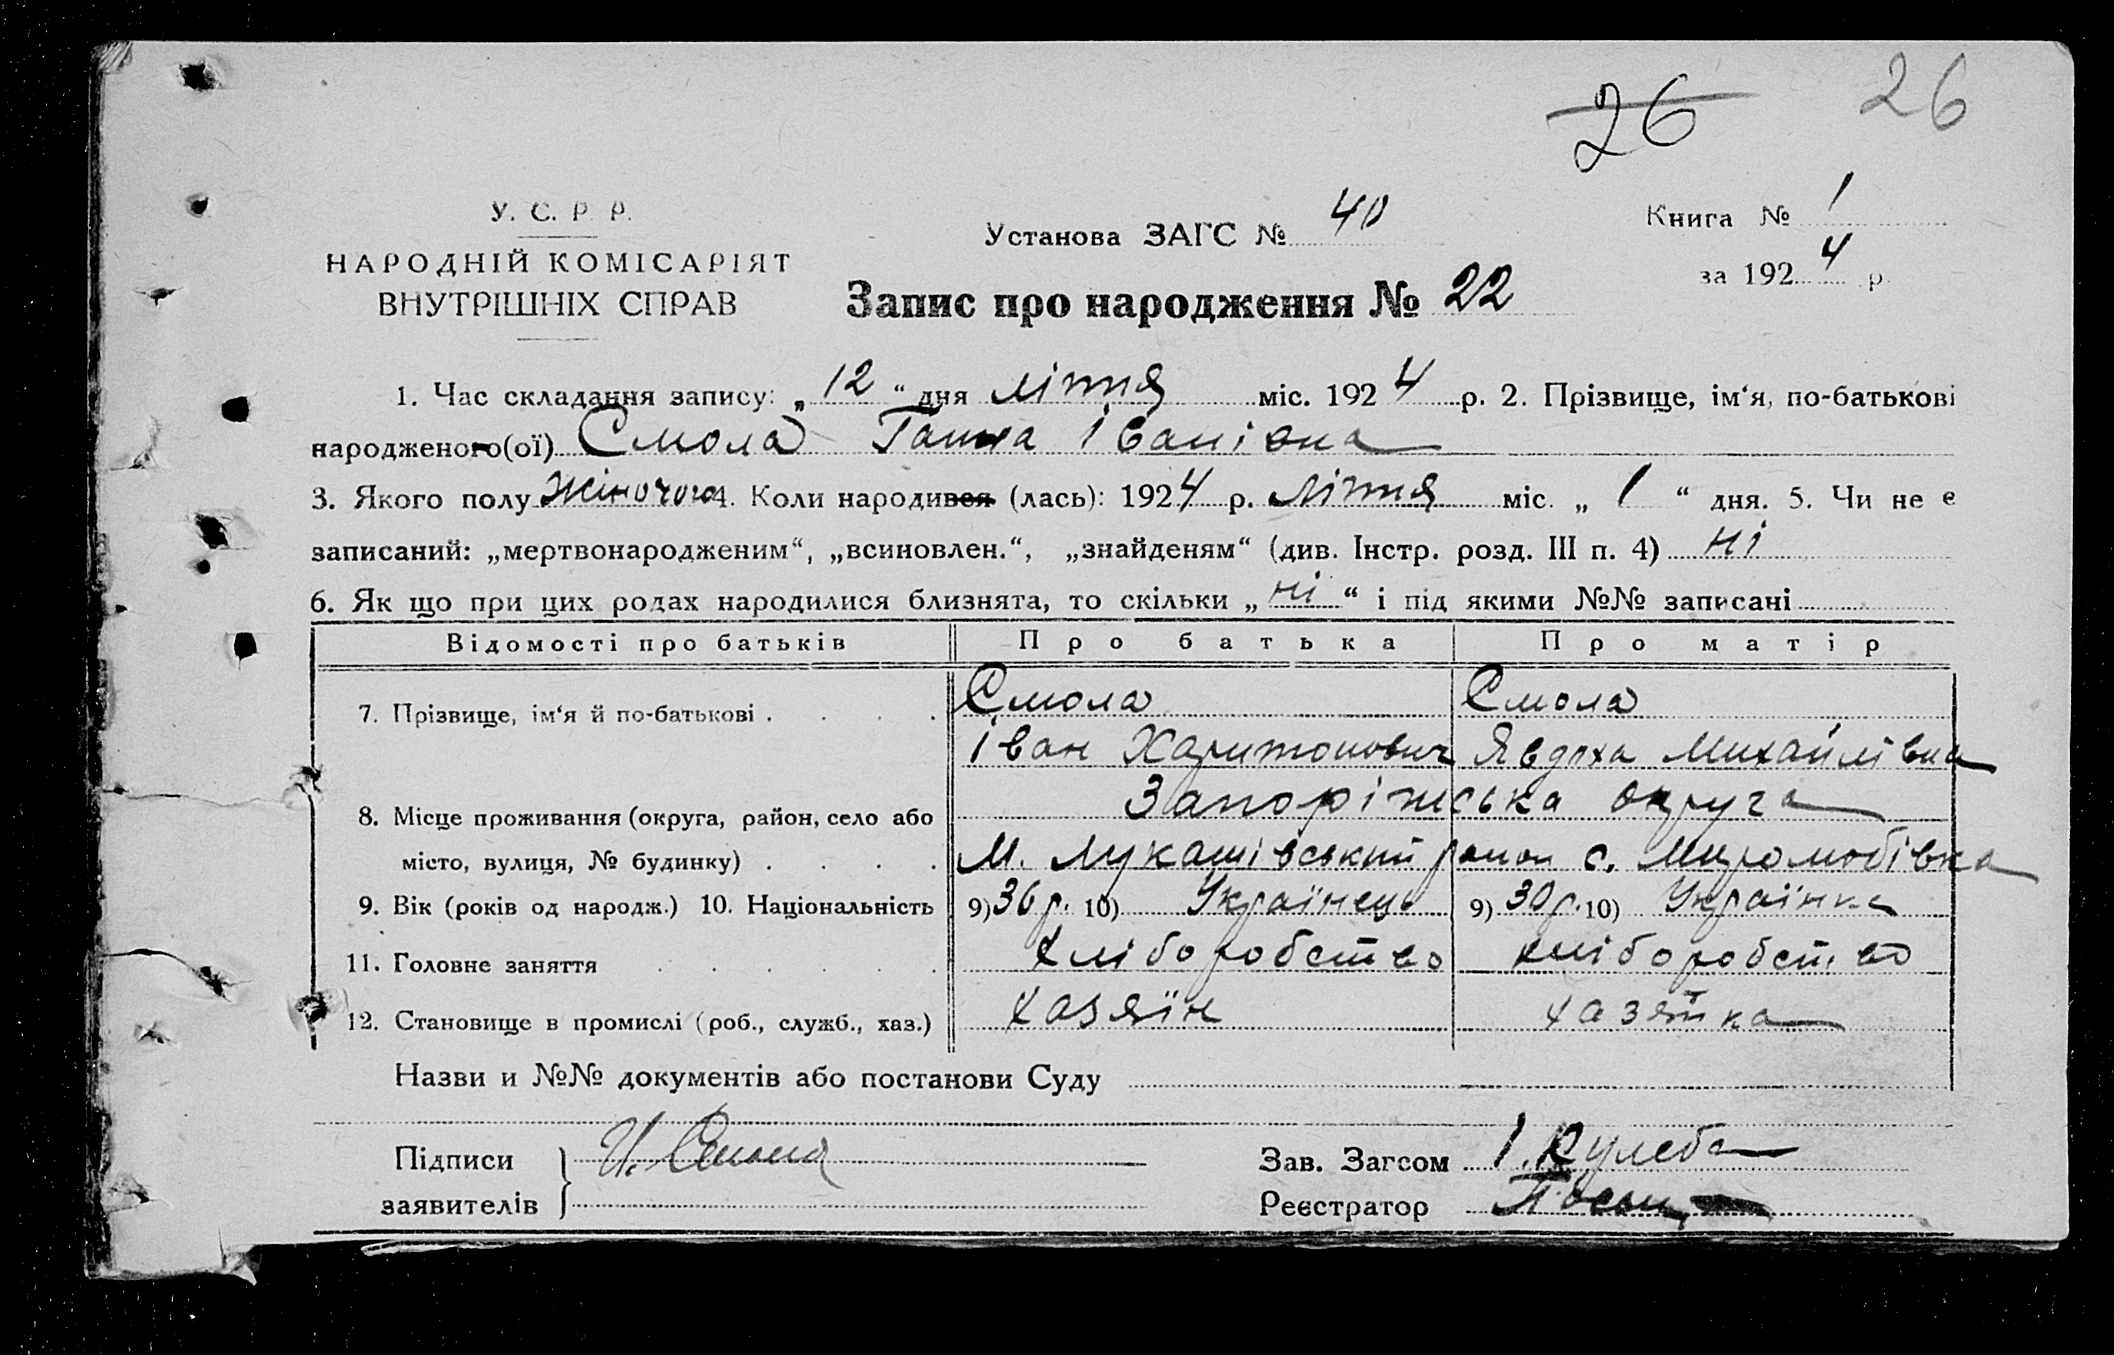 26 26
У. С. Р. Р.
НАРОДНІЙ КОМІСАРІЯТ
ВНУТРІШНІХ СПРАВ
Установа ЗАГС № 40
Книга № 1
за 1924 р.
Запис про народження № 22
1. Час складання запису: „12“ дня ліпня міс. 1924 р. 2. Прізвище, ім‘я, по-батькові
народженого(ої) Смола Ганна Іванівна
3. Якого полу жіночого 4. Коли народився (лась): 1924 р. ліпня міс. „1“ дня. 5. Чи не є
записаний: „мертвонародженим“, „всиновлен.“, „знайденям“ (див. Інстр. розд. III п. 4) ні
6. Як що при цих родах народилися близнята, то скільки „ні“ і під якими №№ записані
Відомості про батьків Про батька Про матір
7. Прізвище, ім‘я й по-батькові . . . . Смола Смола
Іван Харитонович Явдоха Михайлівна
Запоріжська округа
8. Місце проживання (округа, район, село або
місто, вулиця, № будинку) . . . . М. Лукашівський район с.
9. Вік (років од народж.) 10. Національність 9) 36 р. 10) Українець 9) 30 р. 10) Українка
11. Головне заняття . . . . . . хліборобство хліборобство
12. Становище в промислі (роб., служб., хаз.) хазяїн хазяйка
Назви и №№ документів або постанови Суду
Підписи
заявителів
И. Смола
Зав. Загсом І. Кулеба
Реєстратор